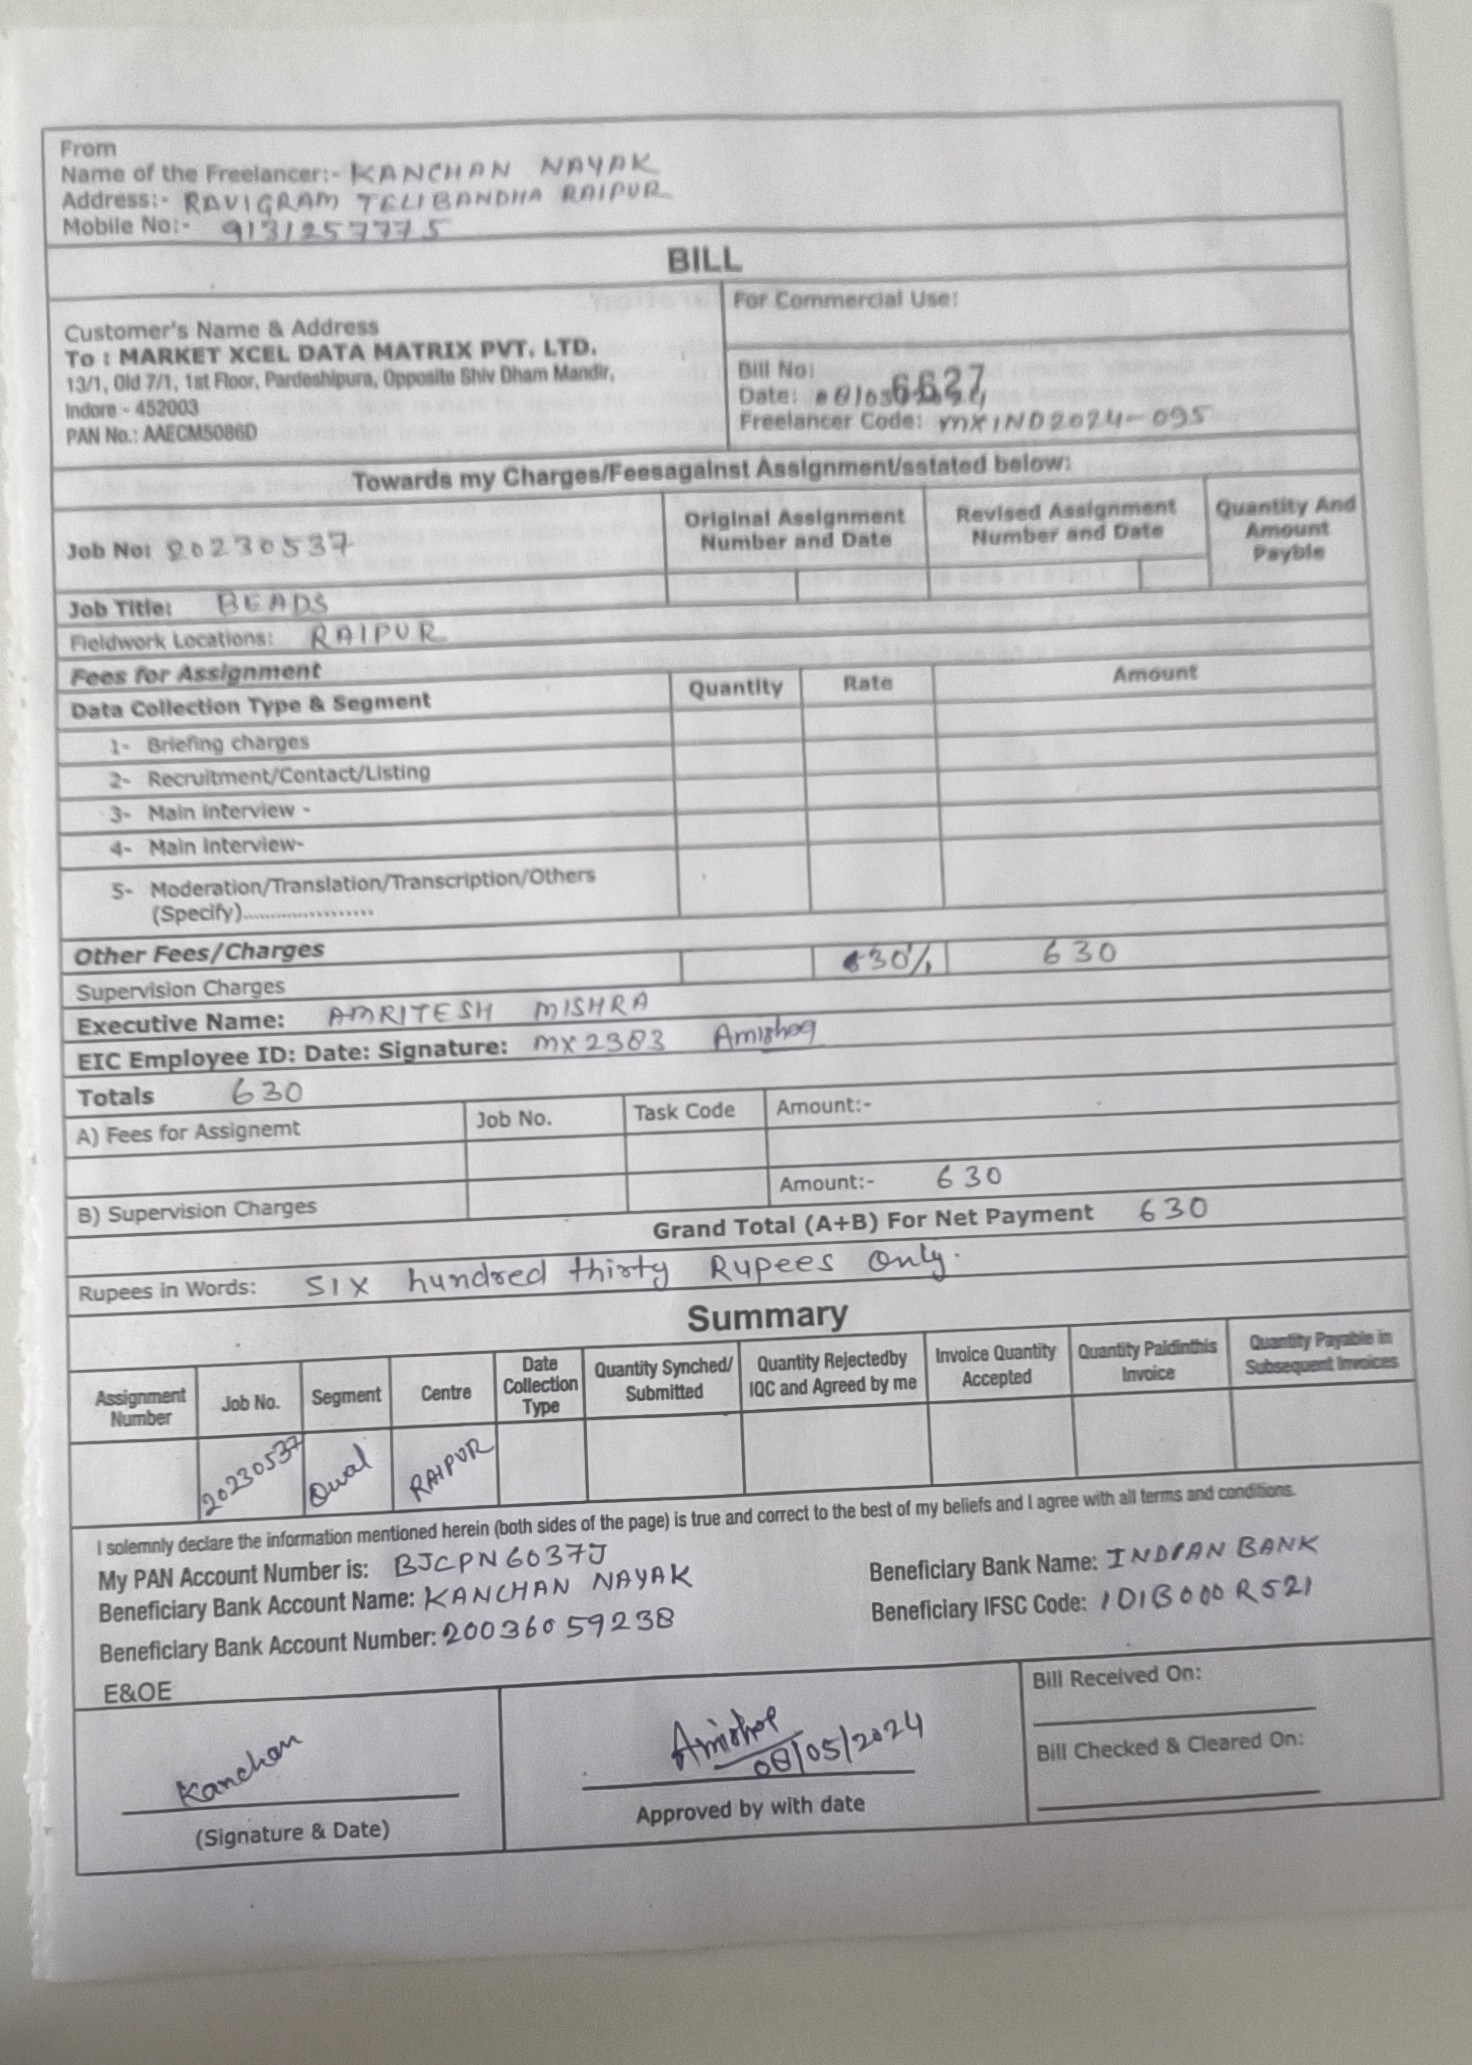 From
Name of the Freelancer:- KANCHAN NAYAK
Address:- RAVIGRAM TELIBANDHA RAIPUR
Mobile No:- 9131257775
BILL
For Commercial Use:
Customer's Name & Address
To : MARKET XCEL DATA MATRIX PVT. LTD.
13/1, Old 7/1, 1st Floor, Pardeshipura, Opposite Shiv Dham Mandir,
Indore - 452003
PAN No.: AAECM5086D
Bill No: 6627
Date: 08/05/2024
Freelancer Code: MXIND2024-095
Towards my Charges/Feesagainst Assignment/sstated below:
Job No: 20230537
Original Assignment Number and Date
Revised Assignment Number and Date
Quantity And Amount Payble
Job Title: BEADS
Fieldwork Locations: RAIPUR
Fees for Assignment
Data Collection Type & Segment Quantity Rate Amount
1- Briefing charges
2- Recruitment/Contact/Listing
3- Main interview -
4- Main interview-
5- Moderation/Translation/Transcription/Others
(Specify).....................
Other Fees/Charges
Supervision Charges 630
Executive Name: AMRITESH MISHRA
EIC Employee ID: Date: Signature: MX2383 Amishra
Totals 630
A) Fees for Assignemt Job No. Task Code Amount:-
B) Supervision Charges Amount:- 630
Grand Total (A+B) For Net Payment 630
Rupees in Words: SIX hundred thirty Rupees Only.
Summary
Assignment Number
Job No.
Segment
Centre
Date Collection Type
Quantity Synched/ Submitted
Quantity Rejectedby IQC and Agreed by me
Invoice Quantity Accepted
Quantity Paidinthis Invoice
Quantity Payable in Subsequent Invoices
20230537 Qual RAIPUR
I solemnly declare the information mentioned herein (both sides of the page) is true and correct to the best of my beliefs and I agree with all terms and conditions.
My PAN Account Number is: BJCPN6037J
Beneficiary Bank Name: INDIAN BANK
Beneficiary Bank Account Name: KANCHAN NAYAK
Beneficiary IFSC Code: IDIB000R521
Beneficiary Bank Account Number: 20036059238
E&OE
Kanchan
(Signature & Date)
08/05/2024
Approved by with date
Bill Received On:
Bill Checked & Cleared On: